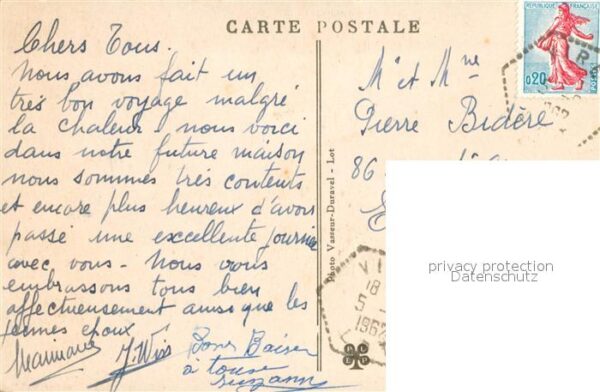 CARTE POSTALE
REPUBLIQUE FRANÇAISE
0,20
POSTES
Chers Tous.
Nous avons fait un
très bon voyage malgré
la chaleur. nous voici
dans notre future maison
nous sommes très contents
et encore plus heureux d'avoir
passé une excellente journée
avec vous. Nous vous
embrassons tous bien
affectueusement ainsi que les
jeunes époux
J. Wiss
Bons Baisers
à tous
Suzanne
Photo Vasseur-Duravel - Lot
Mr et Mme
Pierre Bidère
86
VI
18
5
1962
privacy protection
Datenschutz